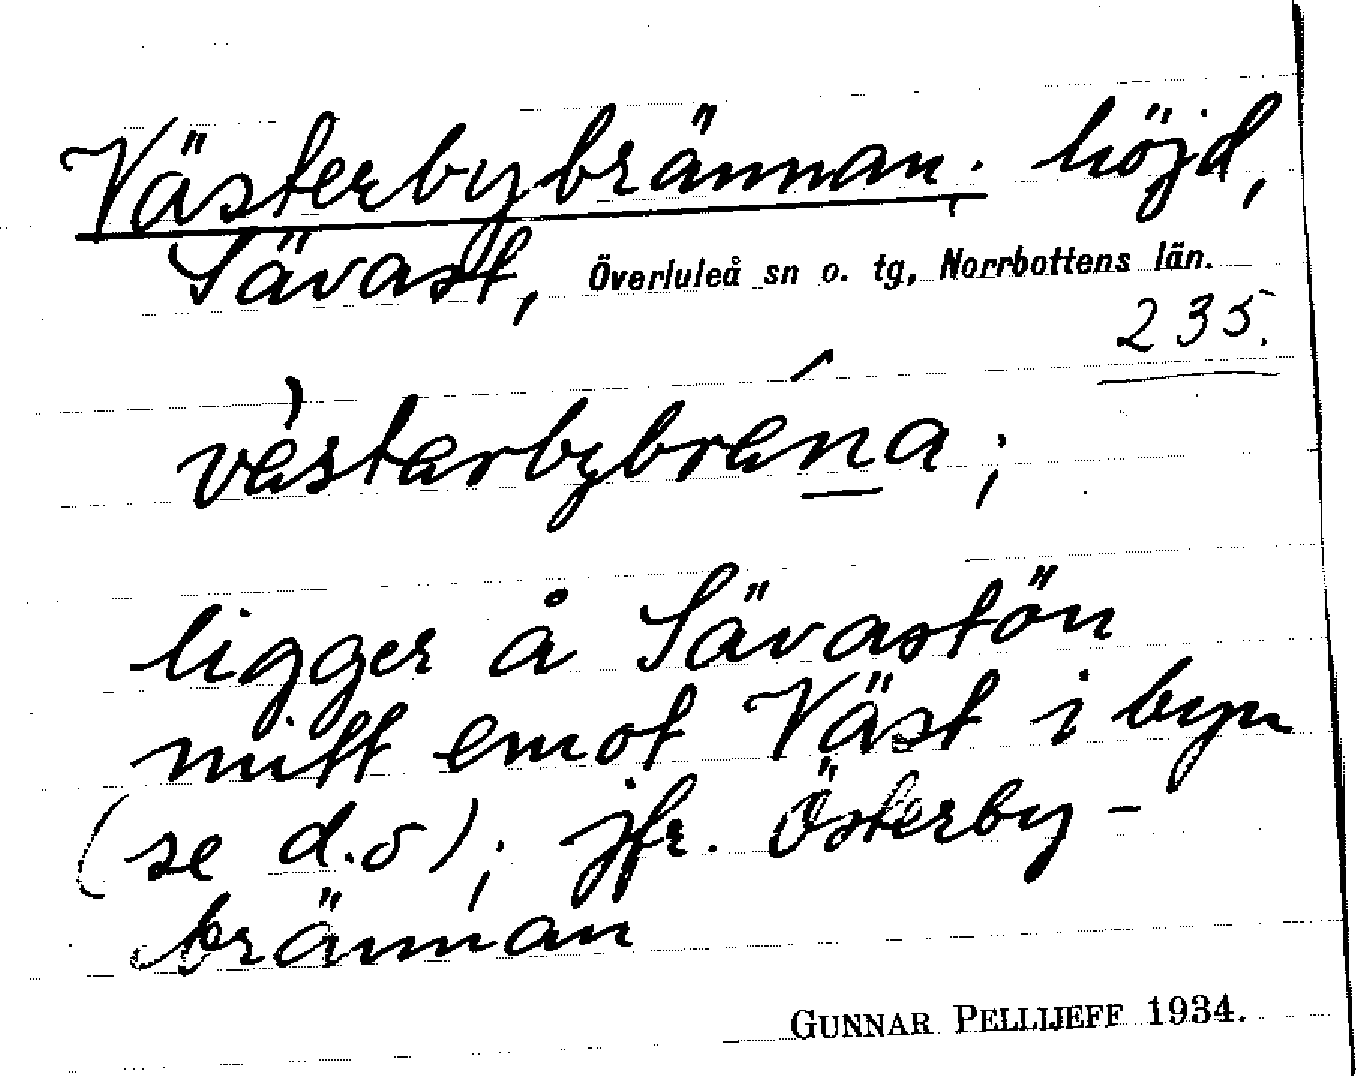 Västerbybrännan; höjd,
Sävast, Överluleå sn o. tg, Norrbottens län.
235.
västarbybräna;
ligger å Sävastön
mitt emot Väst i byn
(se d.o); jfr. Österby-
brännan
GUNNAR PELLIJEFF 1934.